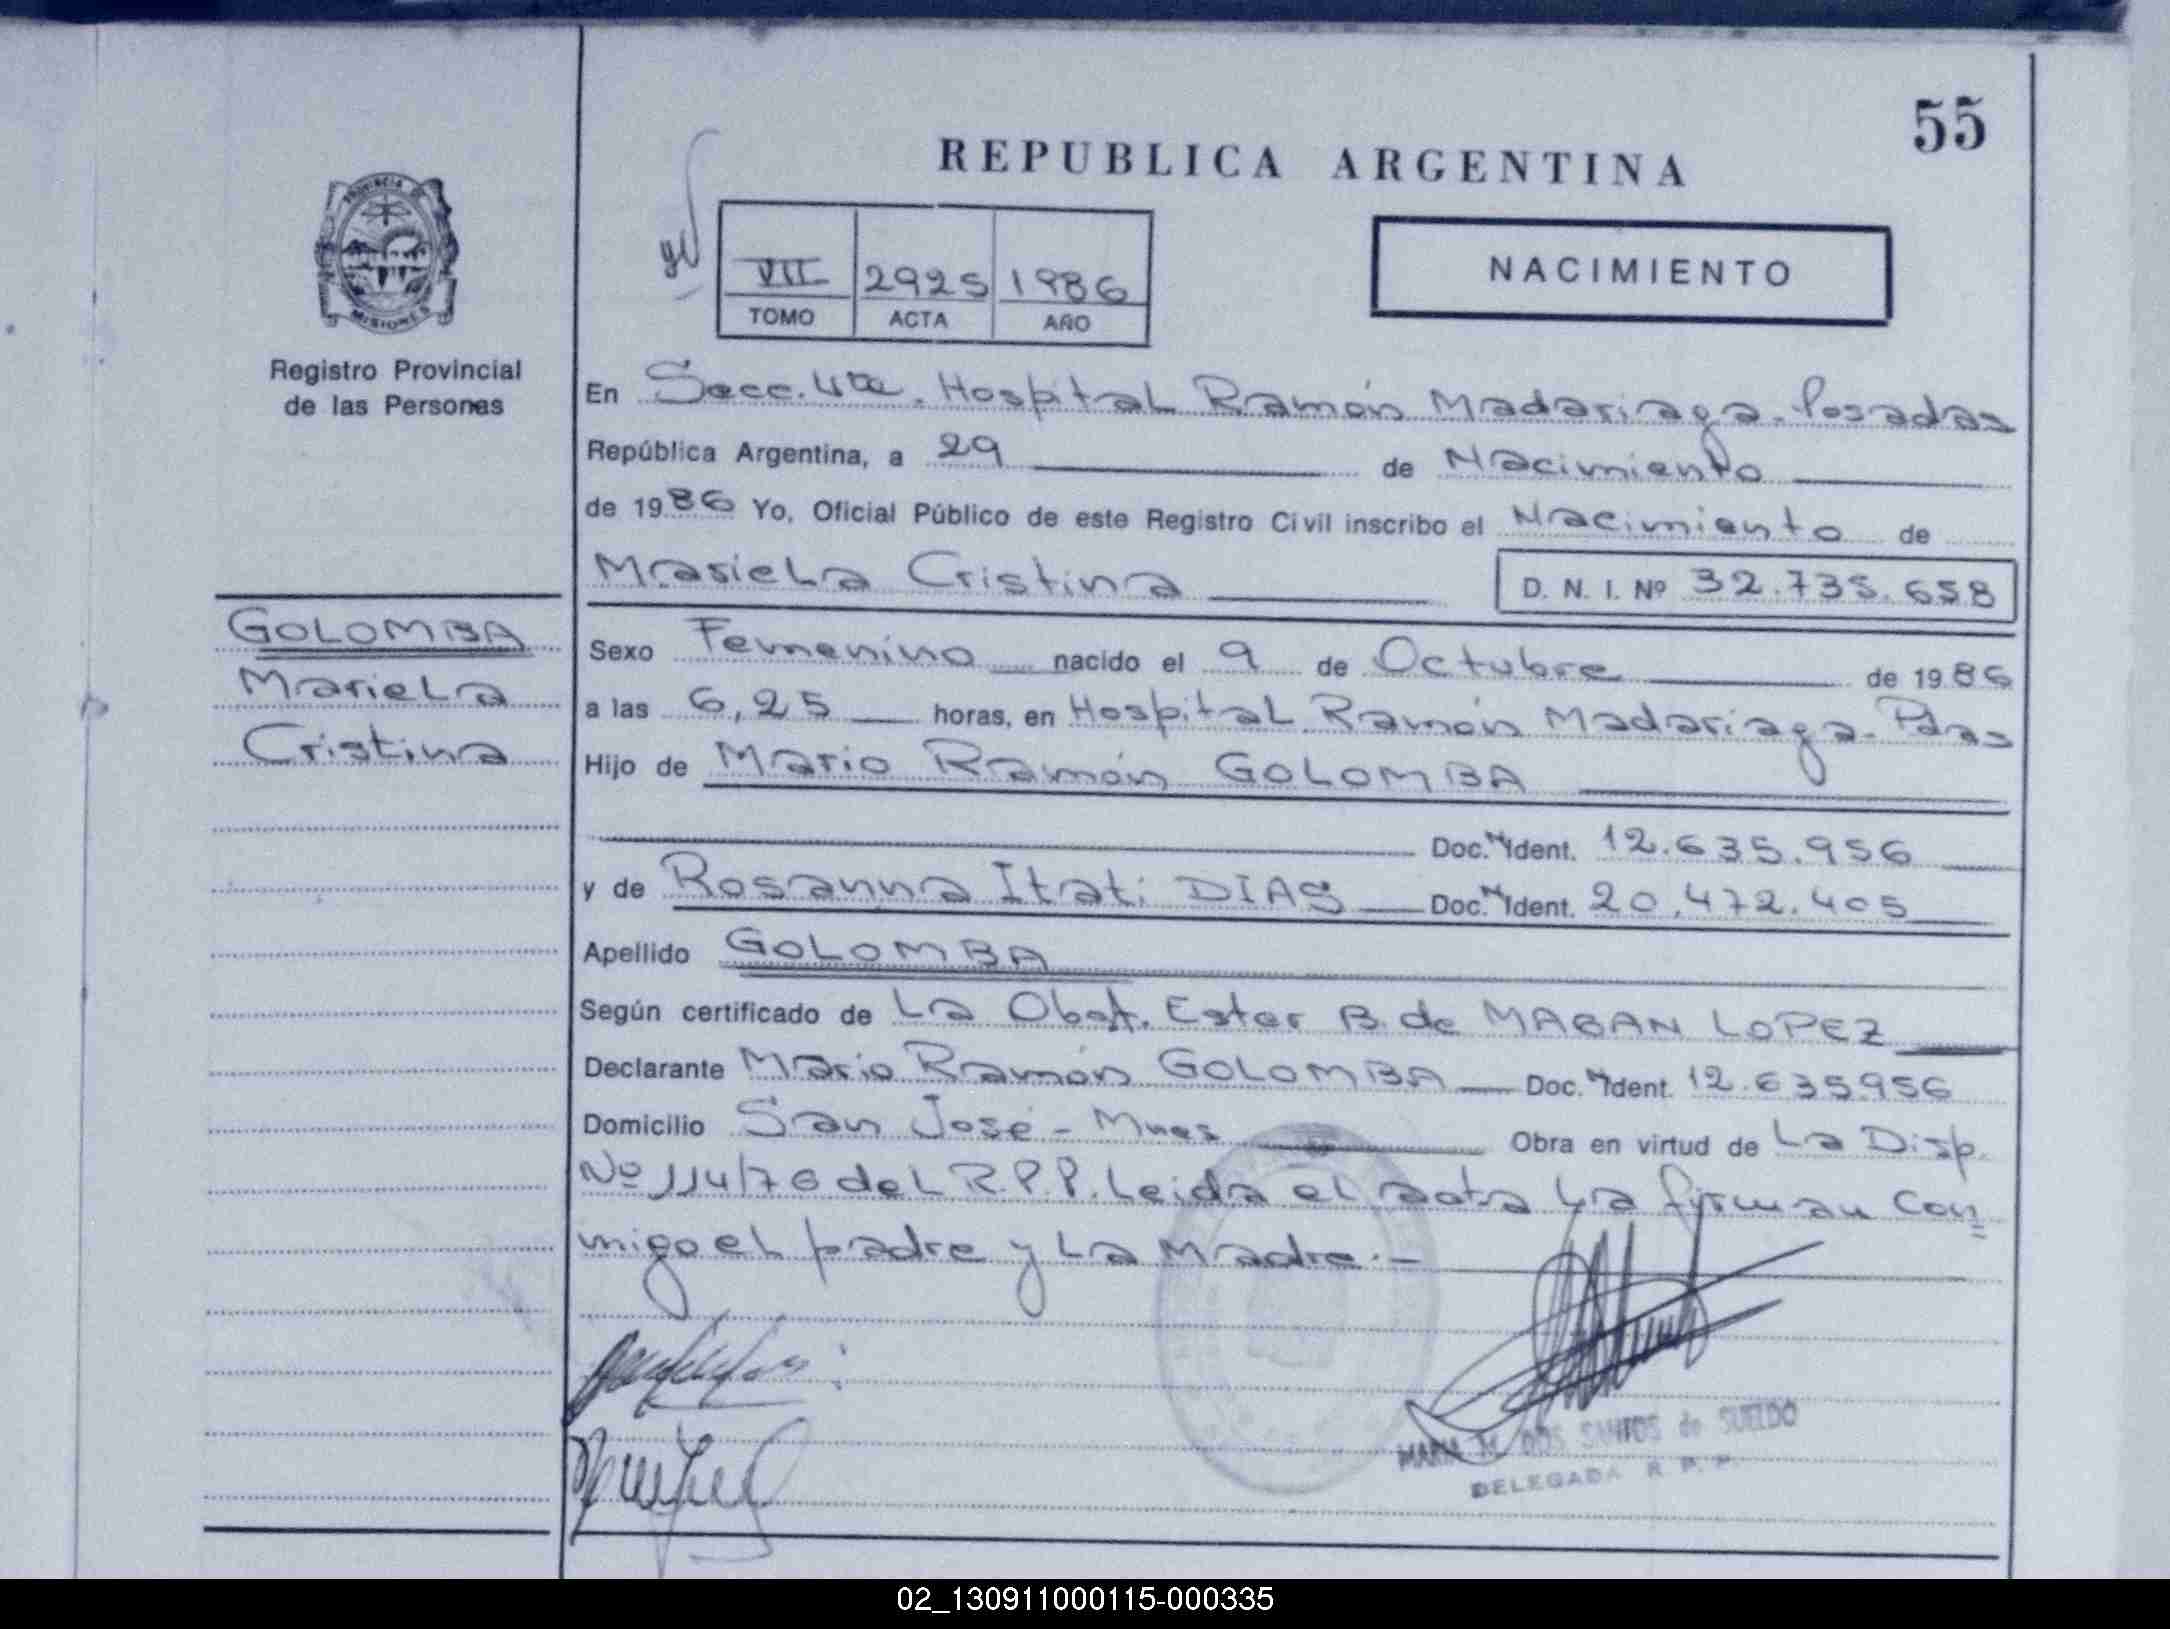 55
REPUBLICA ARGENTINA
PROVINCIA DE
MISIONES
VII 2925 1986
TOMO ACTA AÑO
NACIMIENTO
Registro Provincial
de las Personas
GOLOMBA
Mariela
Cristina
En Secc. 4ta. Hospital Ramón Madariaga. Posadas
República Argentina, a 29 de Nacimiento
de 1986 Yo, Oficial Público de este Registro Civil inscribo el Nacimiento de
Mariela Cristina D. N. I. Nº 32.735.658
Sexo Femenino nacido el 9 de Octubre de 1986
a las 6,25 horas, en Hospital Ramón Madariaga. Pdas
Hijo de Mario Ramón GOLOMBA
Doc. N Ident. 12.635.956
y de Rosanna Itati DIAS Doc. N Ident. 20.472.405
Apellido GOLOMBA
Según certificado de La Obst. Ester B. de MABAN LOPEZ
Declarante Mario Ramón GOLOMBA Doc. N Ident. 12.635.956
Domicilio San José - Mnes Obra en virtud de La Disp.
Nº 114/76 del R.P.P. Leida el acta la firman con
migo el padre y la Madre.-
MARIA M. DOS SANTOS de SUELDO
DELEGADA R. P. P.
02_130911000115-000335